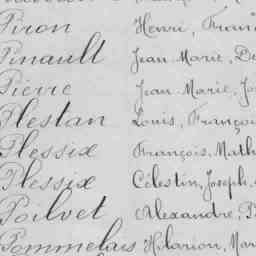 Piron Henri, Franç
Pinault Jean Marie, De
Pierre Jean Marie, Jo
Plestan Louis, Françoi
Plessix François, Math
Plessix Célestin, Joseph,
Poilvet Alexandre, P
Pommelais Hilarion, Mar